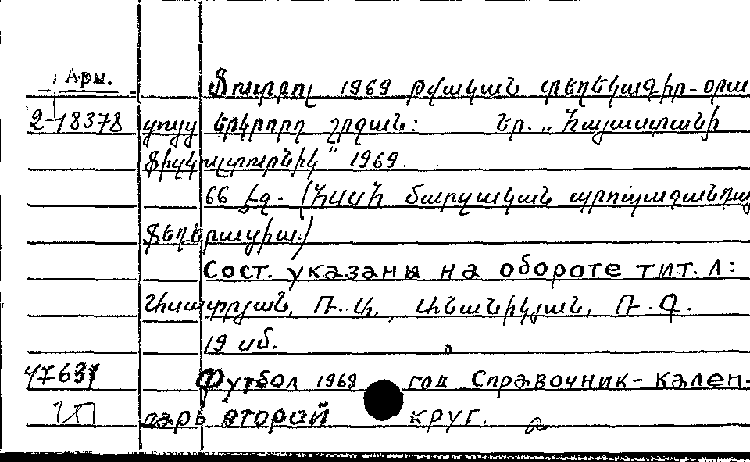 Арм.
Ֆուտբոլ 1969 թվական տեղեկագիր-օրա
2-18378 ցույց երկրորդ շրջան: Եր. „Հայաստանի
Ֆիզկուլտուրնիկ" 1969.
66 էջ. (ՀՍՍՀ մարզական պրոպագանդայ
ֆեդերացիա)
Сост. указаны на обороте тит. л:
Ասատրյան, Ռ. Ա., Անանիկյան, Ռ. Գ.
19 սմ.
47637 Футбол 1969 год Справочник-кален-
дарь второй круг.